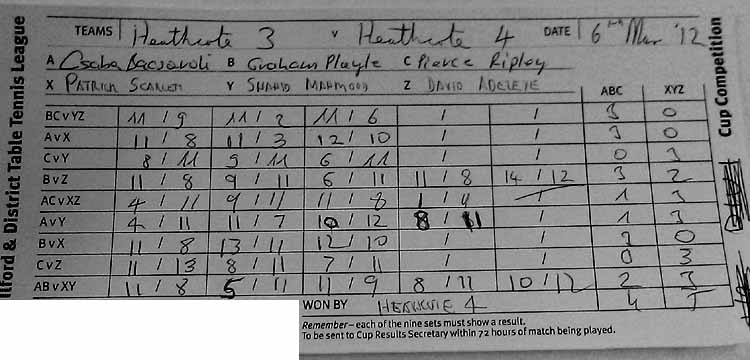 Ilford & District Table Tennis League
TEAMS Heathcote 3 v Heathcote 4 DATE 6th Mar '12
A Csaba B Graham Playle C Pierce Ripley
X PATRICK SCARLETT Y SHAHID MAHMOOD Z DAVID ADELEYE
ABC XYZ
BC v YZ 11 / 9 11 / 2 11 / 6 / / 3 0
A v X 11 / 8 11 / 3 12 / 10 / / 3 0
C v Y 8 / 11 9 / 11 6 / 11 / / 0 3
B v Z 11 / 8 9 / 11 6 / 11 11 / 8 14 / 12 3 2
AC v XZ 4 / 11 9 / 11 11 / 8 1 / 11 / 1 3
A v Y 4 / 11 11 / 7 10 / 12 8 / 11 / 1 3
B v X 11 / 8 13 / 11 12 / 10 / / 3 0
C v Z 11 / 13 8 / 11 7 / 11 / / 0 3
AB v XY 11 / 8 5 / 11 11 / 9 8 / 11 10 / 12 2 3
WON BY HEATHCOTE 4 4 5
Remember – each of the nine sets must show a result.
To be sent to Cup Results Secretary within 72 hours of match being played.
Cup Competition